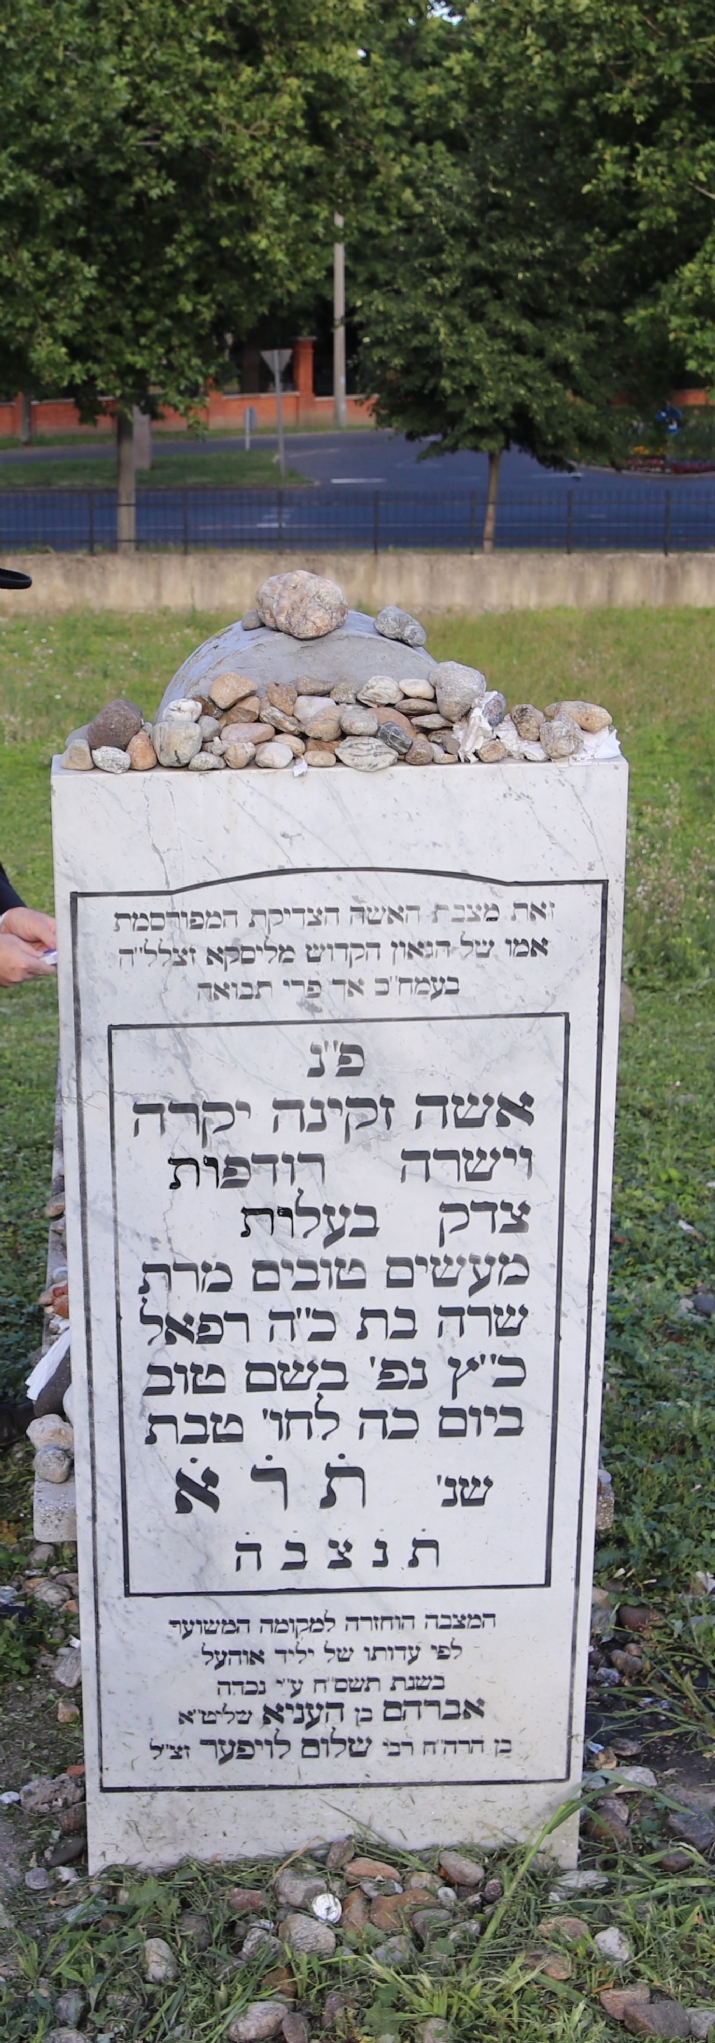 זאת מצבת האשה הצדיקת המפורסמת
אמו של הגאון הקדוש מליסקא זצלל"ה
בעמח"כ אך פרי תבואה
פ"נ
אשה זקינה יקרה
וישרה רודפות
צדק בעלות
מעשים טובים מרת
שרה בת כ"ה רפאל
כ"ץ נפ' בשם טוב
ביום כה לחו' טבת
שנ' תרא
תנצבה
המצבה הוחזרה למקומה המשוער
לפי עדותו של יליד אוהעל
בשנת תשס"ח ע"י נכדה
אברהם בן העניא שליט"א
בן הרה"ח רבי שלום לויפער זצ"ל